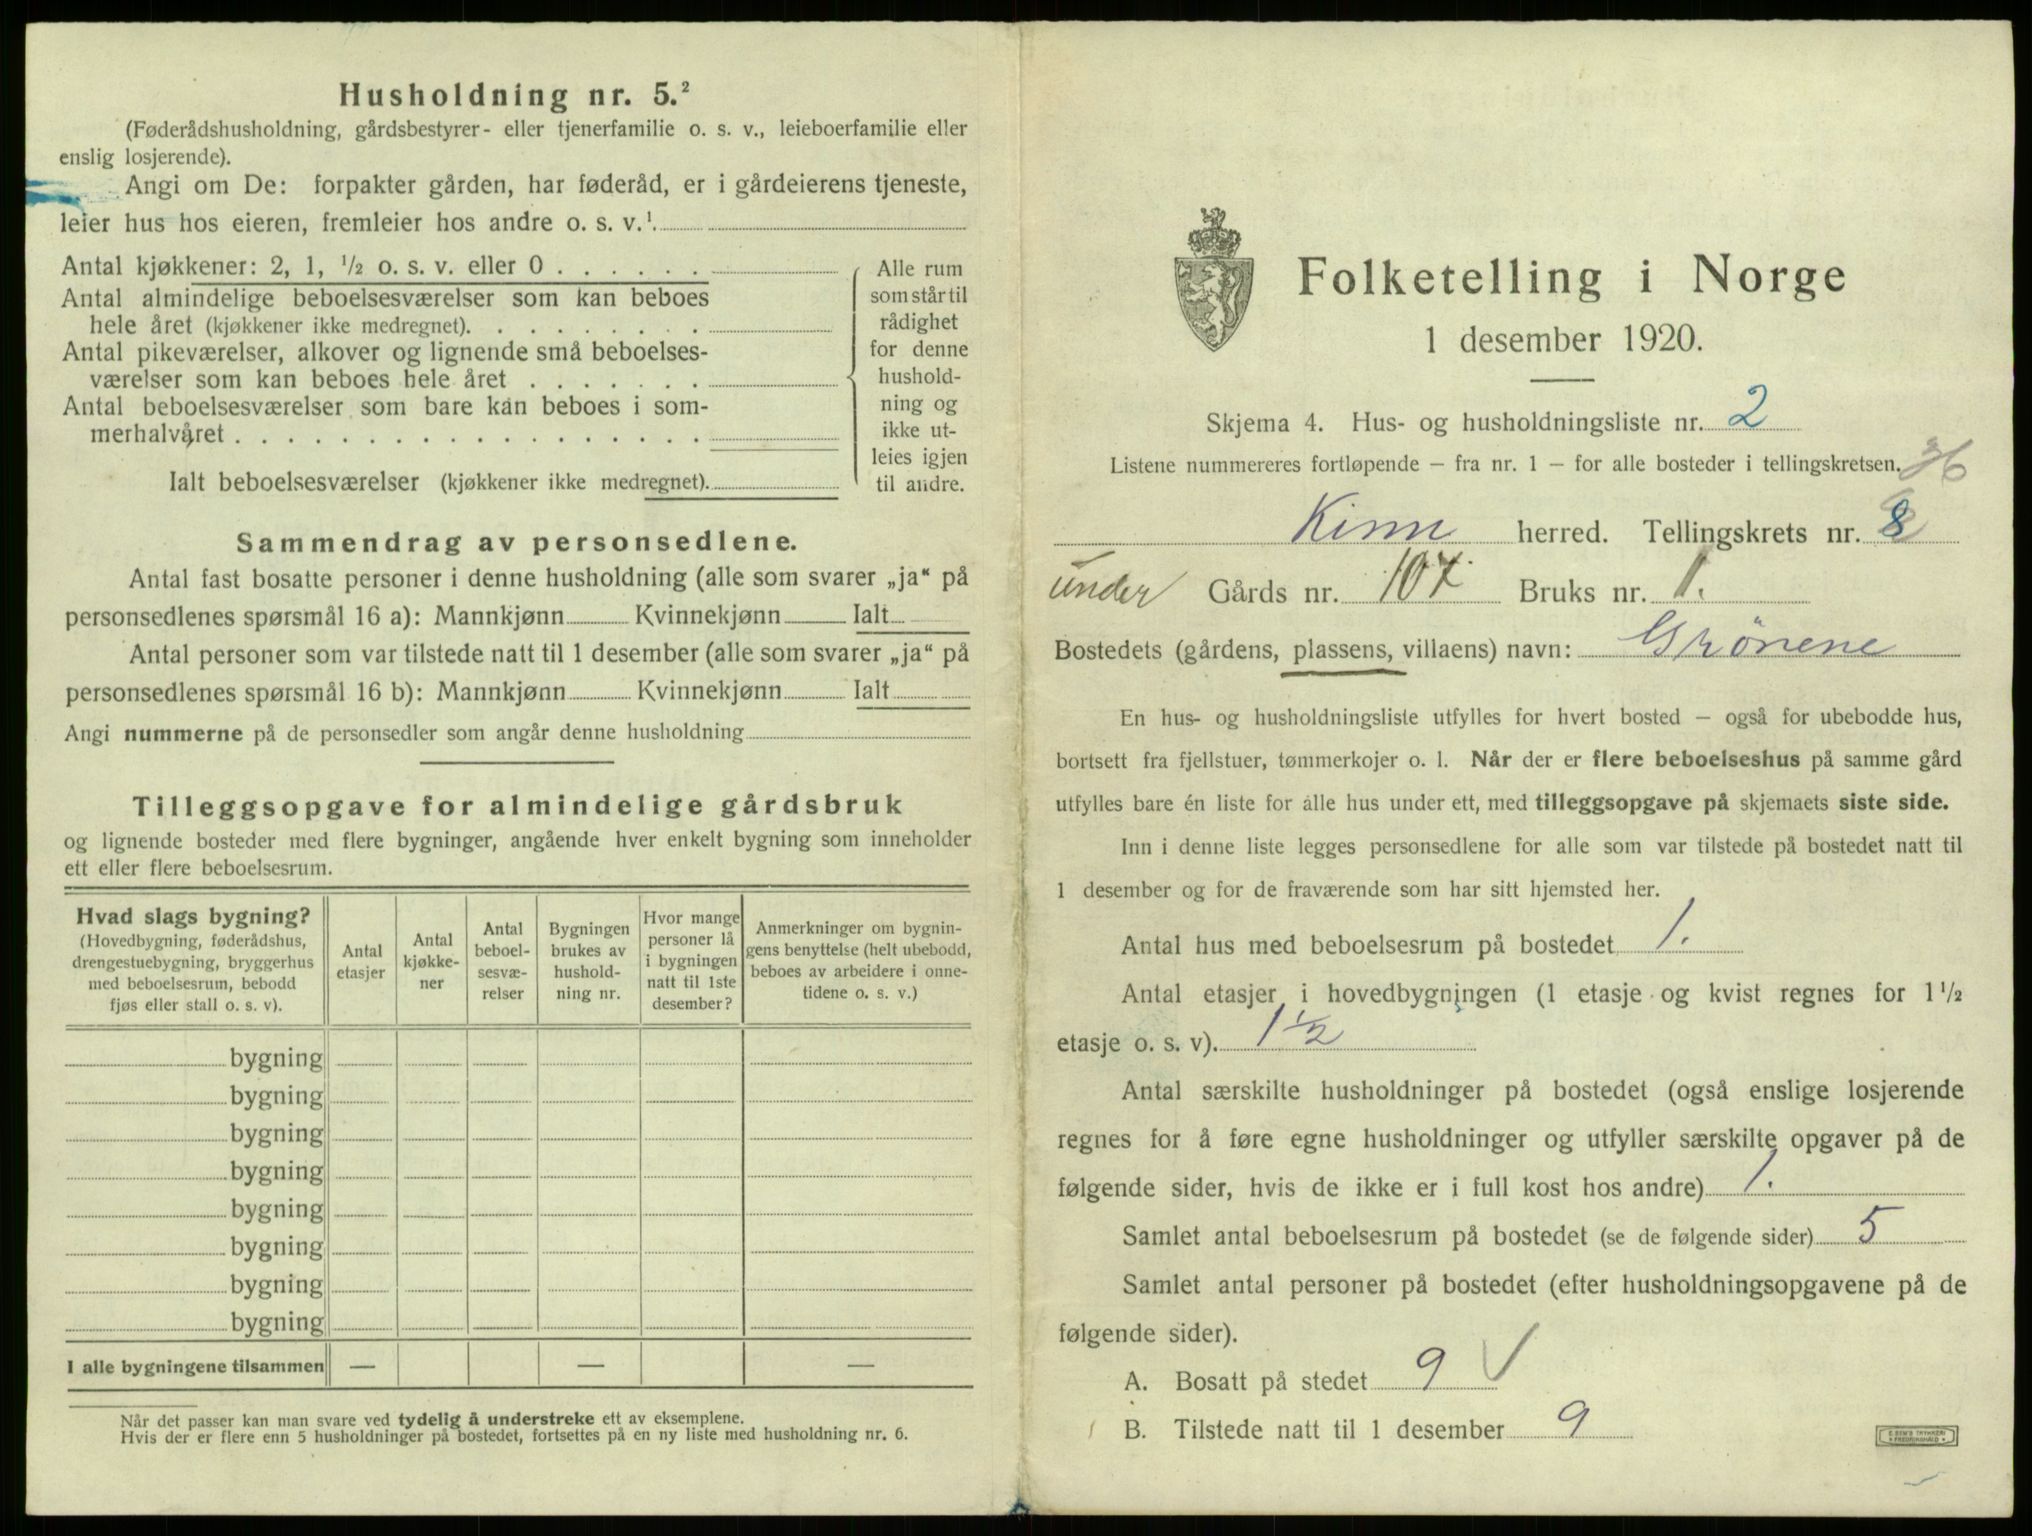 Husholdning nr. 5.²
(Føderådshusholdning, gårdsbestyrer- eller tjenerfamilie o. s. v., leieboerfamilie eller
enslig losjerende).
Angi om De: forpakter gården, har føderåd, er i gårdeierens tjeneste,
leier hus hos eieren, fremleier hos andre o. s. v.¹
Antal kjøkkener: 2, 1, ½ o. s. v. eller 0 . . . . . .
Antal almindelige beboelsesværelser som kan beboes
hele året (kjøkkener ikke medregnet). . . . . . . . .
Antal pikeværelser, alkover og lignende små beboelses-
værelser som kan beboes hele året . . . . . . .
Antal beboelsesværelser som bare kan beboes i som-
merhalvåret . . . . . . . . . . . . . . . . . .
Ialt beboelsesværelser (kjøkkener ikke medregnet).
Alle rum
som står til
rådighet
for denne
hushold-
ning og
ikke ut-
leies igjen
til andre.
Sammendrag av personsedlene.
Antal fast bosatte personer i denne husholdning (alle som svarer „ja“ på
personsedlenes spørsmål 16 a): Mannkjønn Kvinnekjønn Ialt
Antal personer som var tilstede natt til 1 desember (alle som svarer „ja“ på
personsedlenes spørsmål 16 b): Mannkjønn Kvinnekjønn Ialt
Angi nummerne på de personsedler som angår denne husholdning
Tilleggsopgave for almindelige gårdsbruk
og lignende bosteder med flere bygninger, angående hver enkelt bygning som inneholder
ett eller flere beboelsesrum.
Hvad slags bygning?
(Hovedbygning, føderådshus,
drengestuebygning, bryggerhus
med beboelsesrum, bebodd
fjøs eller stall o. s. v).
Antal
etasjer
Antal
kjøkke-
ner
Antal
beboel-
sesvæ-
relser
Bygningen
brukes av
hushold-
ning nr.
Hvor mange
personer lå
i bygningen
natt til 1ste
desember?
Anmerkninger om bygnin-
gens benyttelse (helt ubebodd,
beboes av arbeidere i onne-
tidene o. s. v.)
bygning
bygning
bygning
bygning
bygning
bygning
bygning
bygning
I alle bygningene tilsammen — — —
Når det passer kan man svare ved tydelig å understreke ett av eksemplene.
Hvis der er flere enn 5 husholdninger på bostedet, fortsettes på en ny liste med husholdning nr. 6.
Folketelling i Norge
1 desember 1920.
Skjema 4. Hus- og husholdningsliste nr. 2
Listene nummereres fortløpende – fra nr. 1 – for alle bosteder i tellingskretsen. 36
Kinn herred. Tellingskrets nr. 8
under Gårds nr. 107. Bruks nr. 1.
Bostedets (gårdens, plassens, villaens) navn: Grönene
En hus- og husholdningsliste utfylles for hvert bosted – også for ubebodde hus,
bortsett fra fjellstuer, tømmerkojer o. l. Når der er flere beboelseshus på samme gård
utfylles bare én liste for alle hus under ett, med tilleggsopgave på skjemaets siste side.
Inn i denne liste legges personsedlene for alle som var tilstede på bostedet natt til
1 desember og for de fraværende som har sitt hjemsted her.
Antal hus med beboelsesrum på bostedet 1.
Antal etasjer i hovedbygningen (1 etasje og kvist regnes for 1½
etasje o. s. v). 1½
Antal særskilte husholdninger på bostedet (også enslige losjerende
regnes for å føre egne husholdninger og utfyller særskilte opgaver på de
følgende sider, hvis de ikke er i full kost hos andre) 1.
Samlet antal beboelsesrum på bostedet (se de følgende sider) 5
Samlet antal personer på bostedet (efter husholdningsopgavene på de
følgende sider).
A. Bosatt på stedet 9 √
B. Tilstede natt til 1 desember 9
E. SEM'S TRYKKERI
FREDRIKSHALD